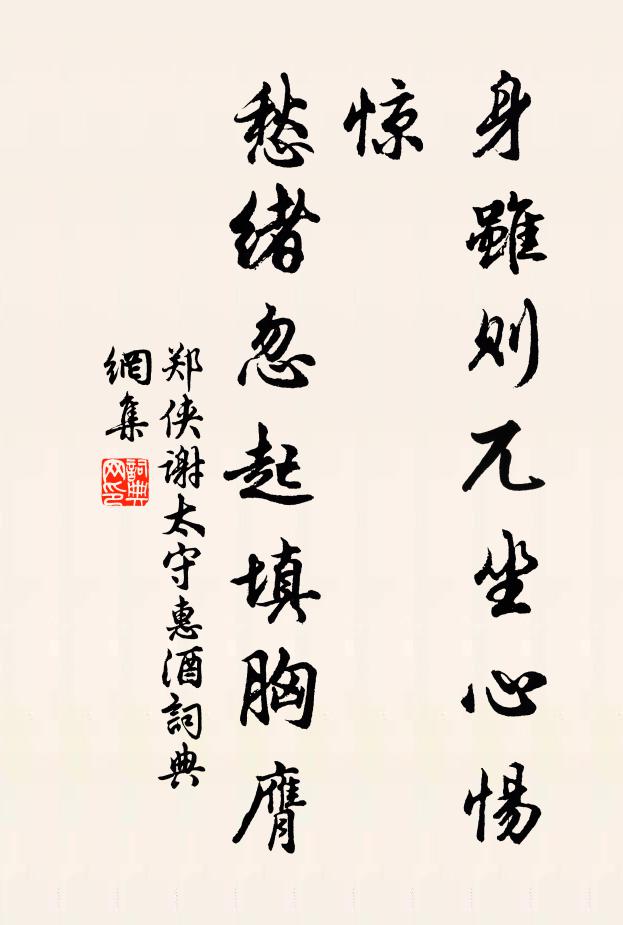 身雖則兀坐心惕
惊
愁绪忽起填胸膺
郑侠谢太守惠酒詞典
網集
詞典
网印